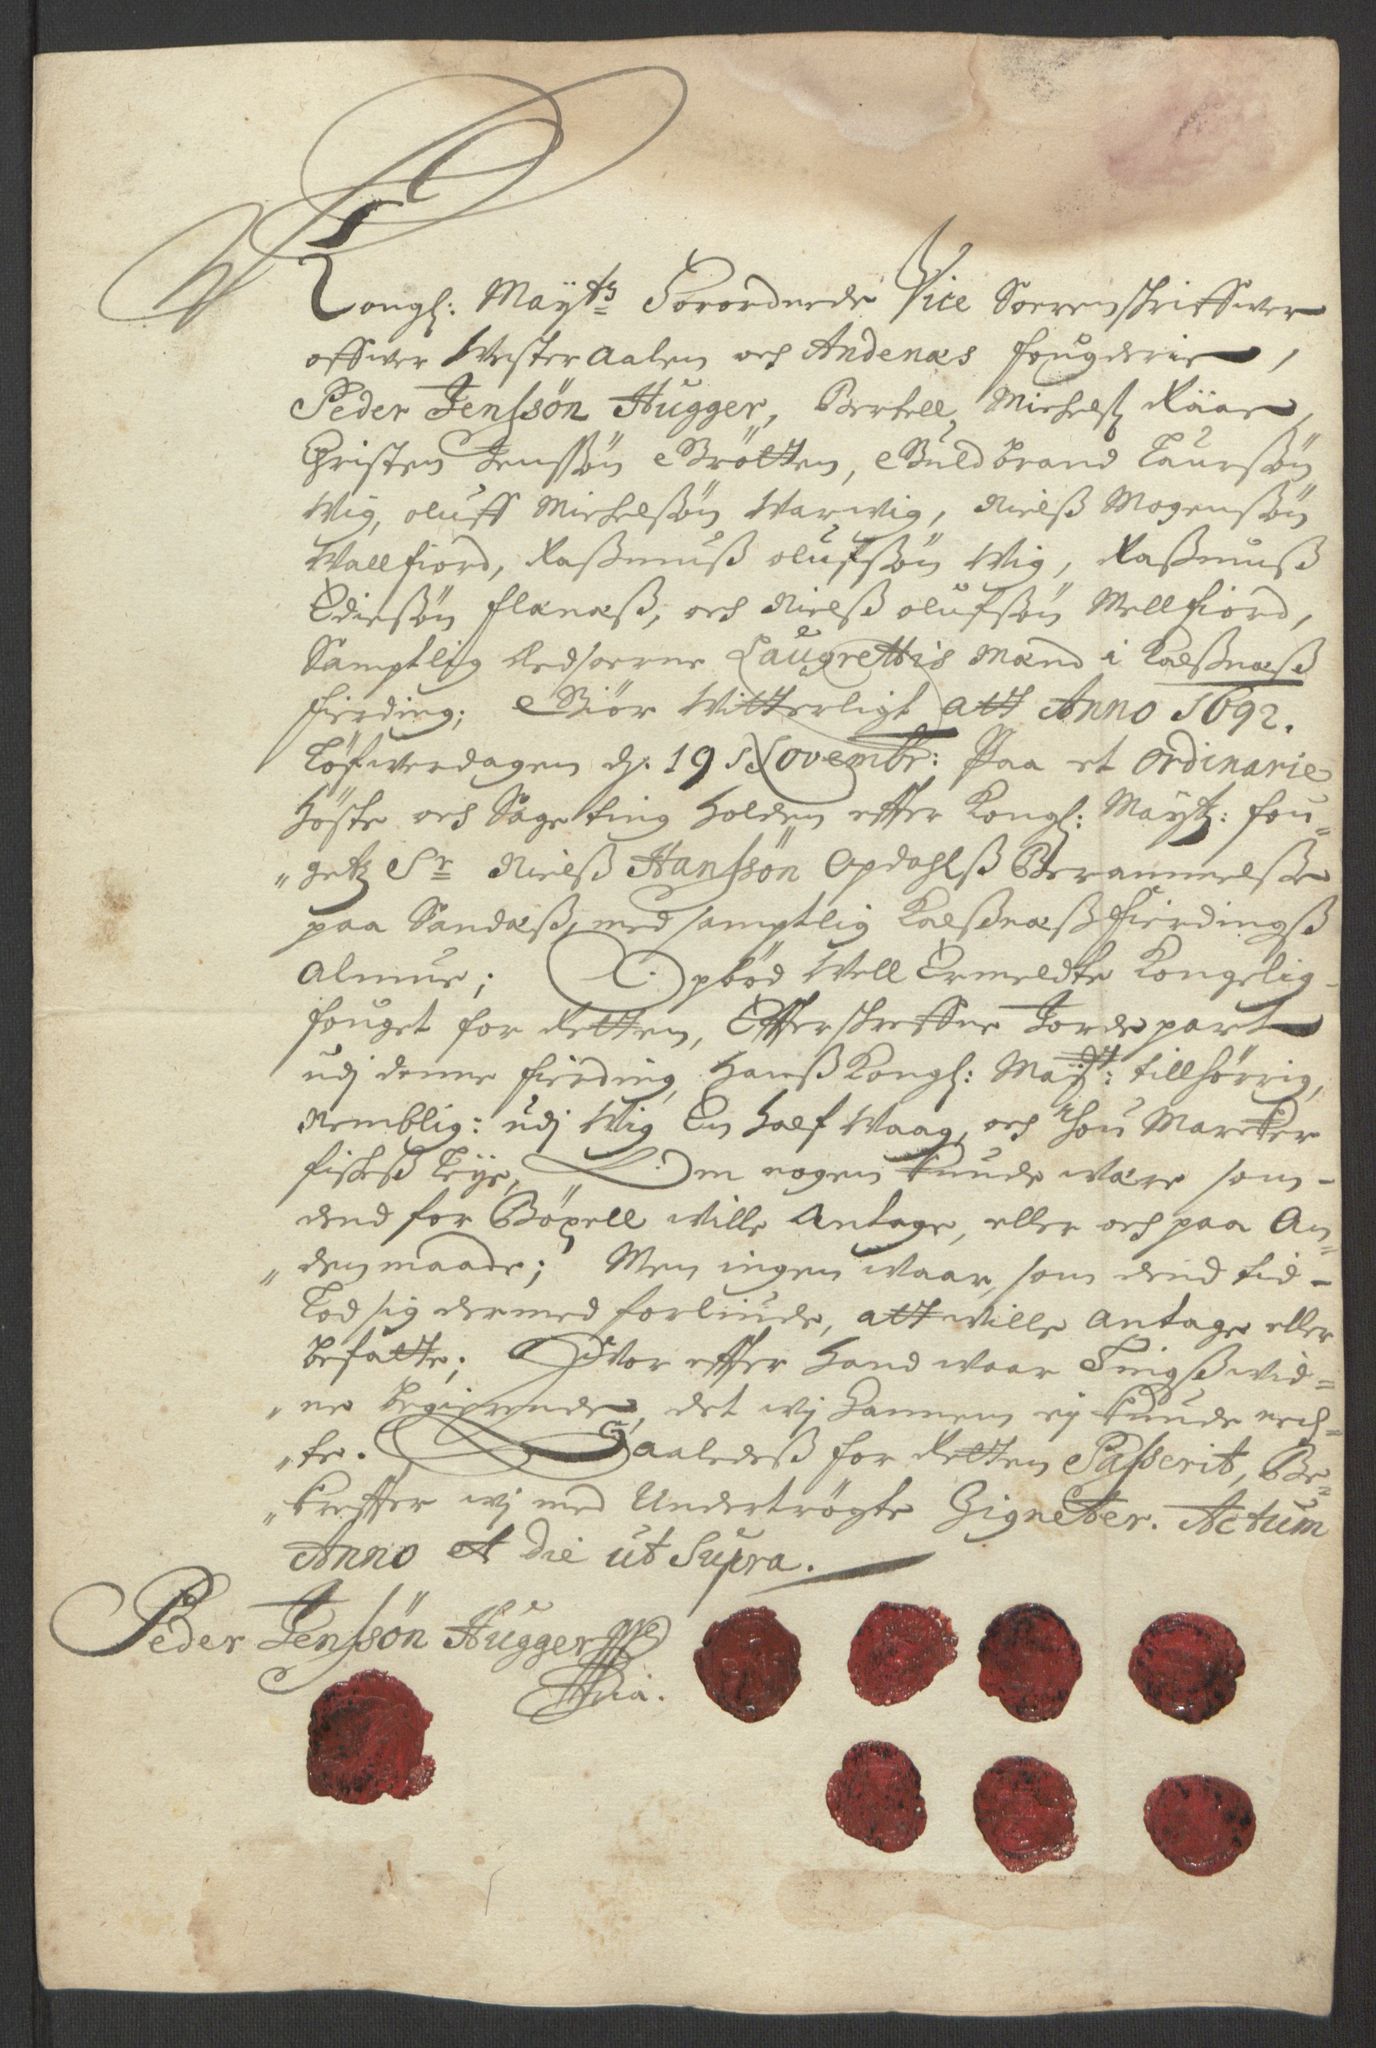 Kongl: Mayts Forordnede Vice Soerenskriffwer
offwer Westeraalen och Andenæs fougderie,
Peder Jenssön Hugger, Bertell Michelsz Rääe,
Christen Jenssön Brötten, Guldbrand Laursön
Wig, Oluff Michelsön Warwig, Nielß Mogensön
Wallfiord, Raßmuß Olufsön Wig, Raßmuß
Ediesön Flænæß, och Nielß Olufsön Mellfiord,
Samptlig Edsoerne Laugrettis Mænd i Kalßnæß
fierding; Giör Witterligt att Anno 1692.
Löfwerdagen d. 19 Novembr: Paa et Ordinarie
Höste och Sage ting holden effter Kongl: Mayts: fou=
"getz Sr Nielß Hanssön Opdahlß Berammelse
paa Sandæß, med samptlig Kalßnæß fierdingß
Almue; Opböd Well Ermeldte Kongelig
fouget for Retten, Effterskreffne Jordepart
udj denne fierding Hanß Kongl: Mayt: tillhörrig,
Nemblig: udj Wig En half Waag, och Thou Marcker
fiskeß Leye, Om nogen kunde være som-
dend for Böxell wille Antage, eller och paa An=
"den maade; Men ingen waar, som dend tid-
Lod sig dermed forliude, att wille Antage eller
befatte; Hvor effter Hand waar Tingßwid=
"ne begierende, det wj Hannem ej kunde nech=
"te. Saaledeß for Retten Passerit, Be=
"kreffter wj med Undertrögte Zigneter. Actum
Anno et Die ut Supra.
Peder Jenssön Hugger